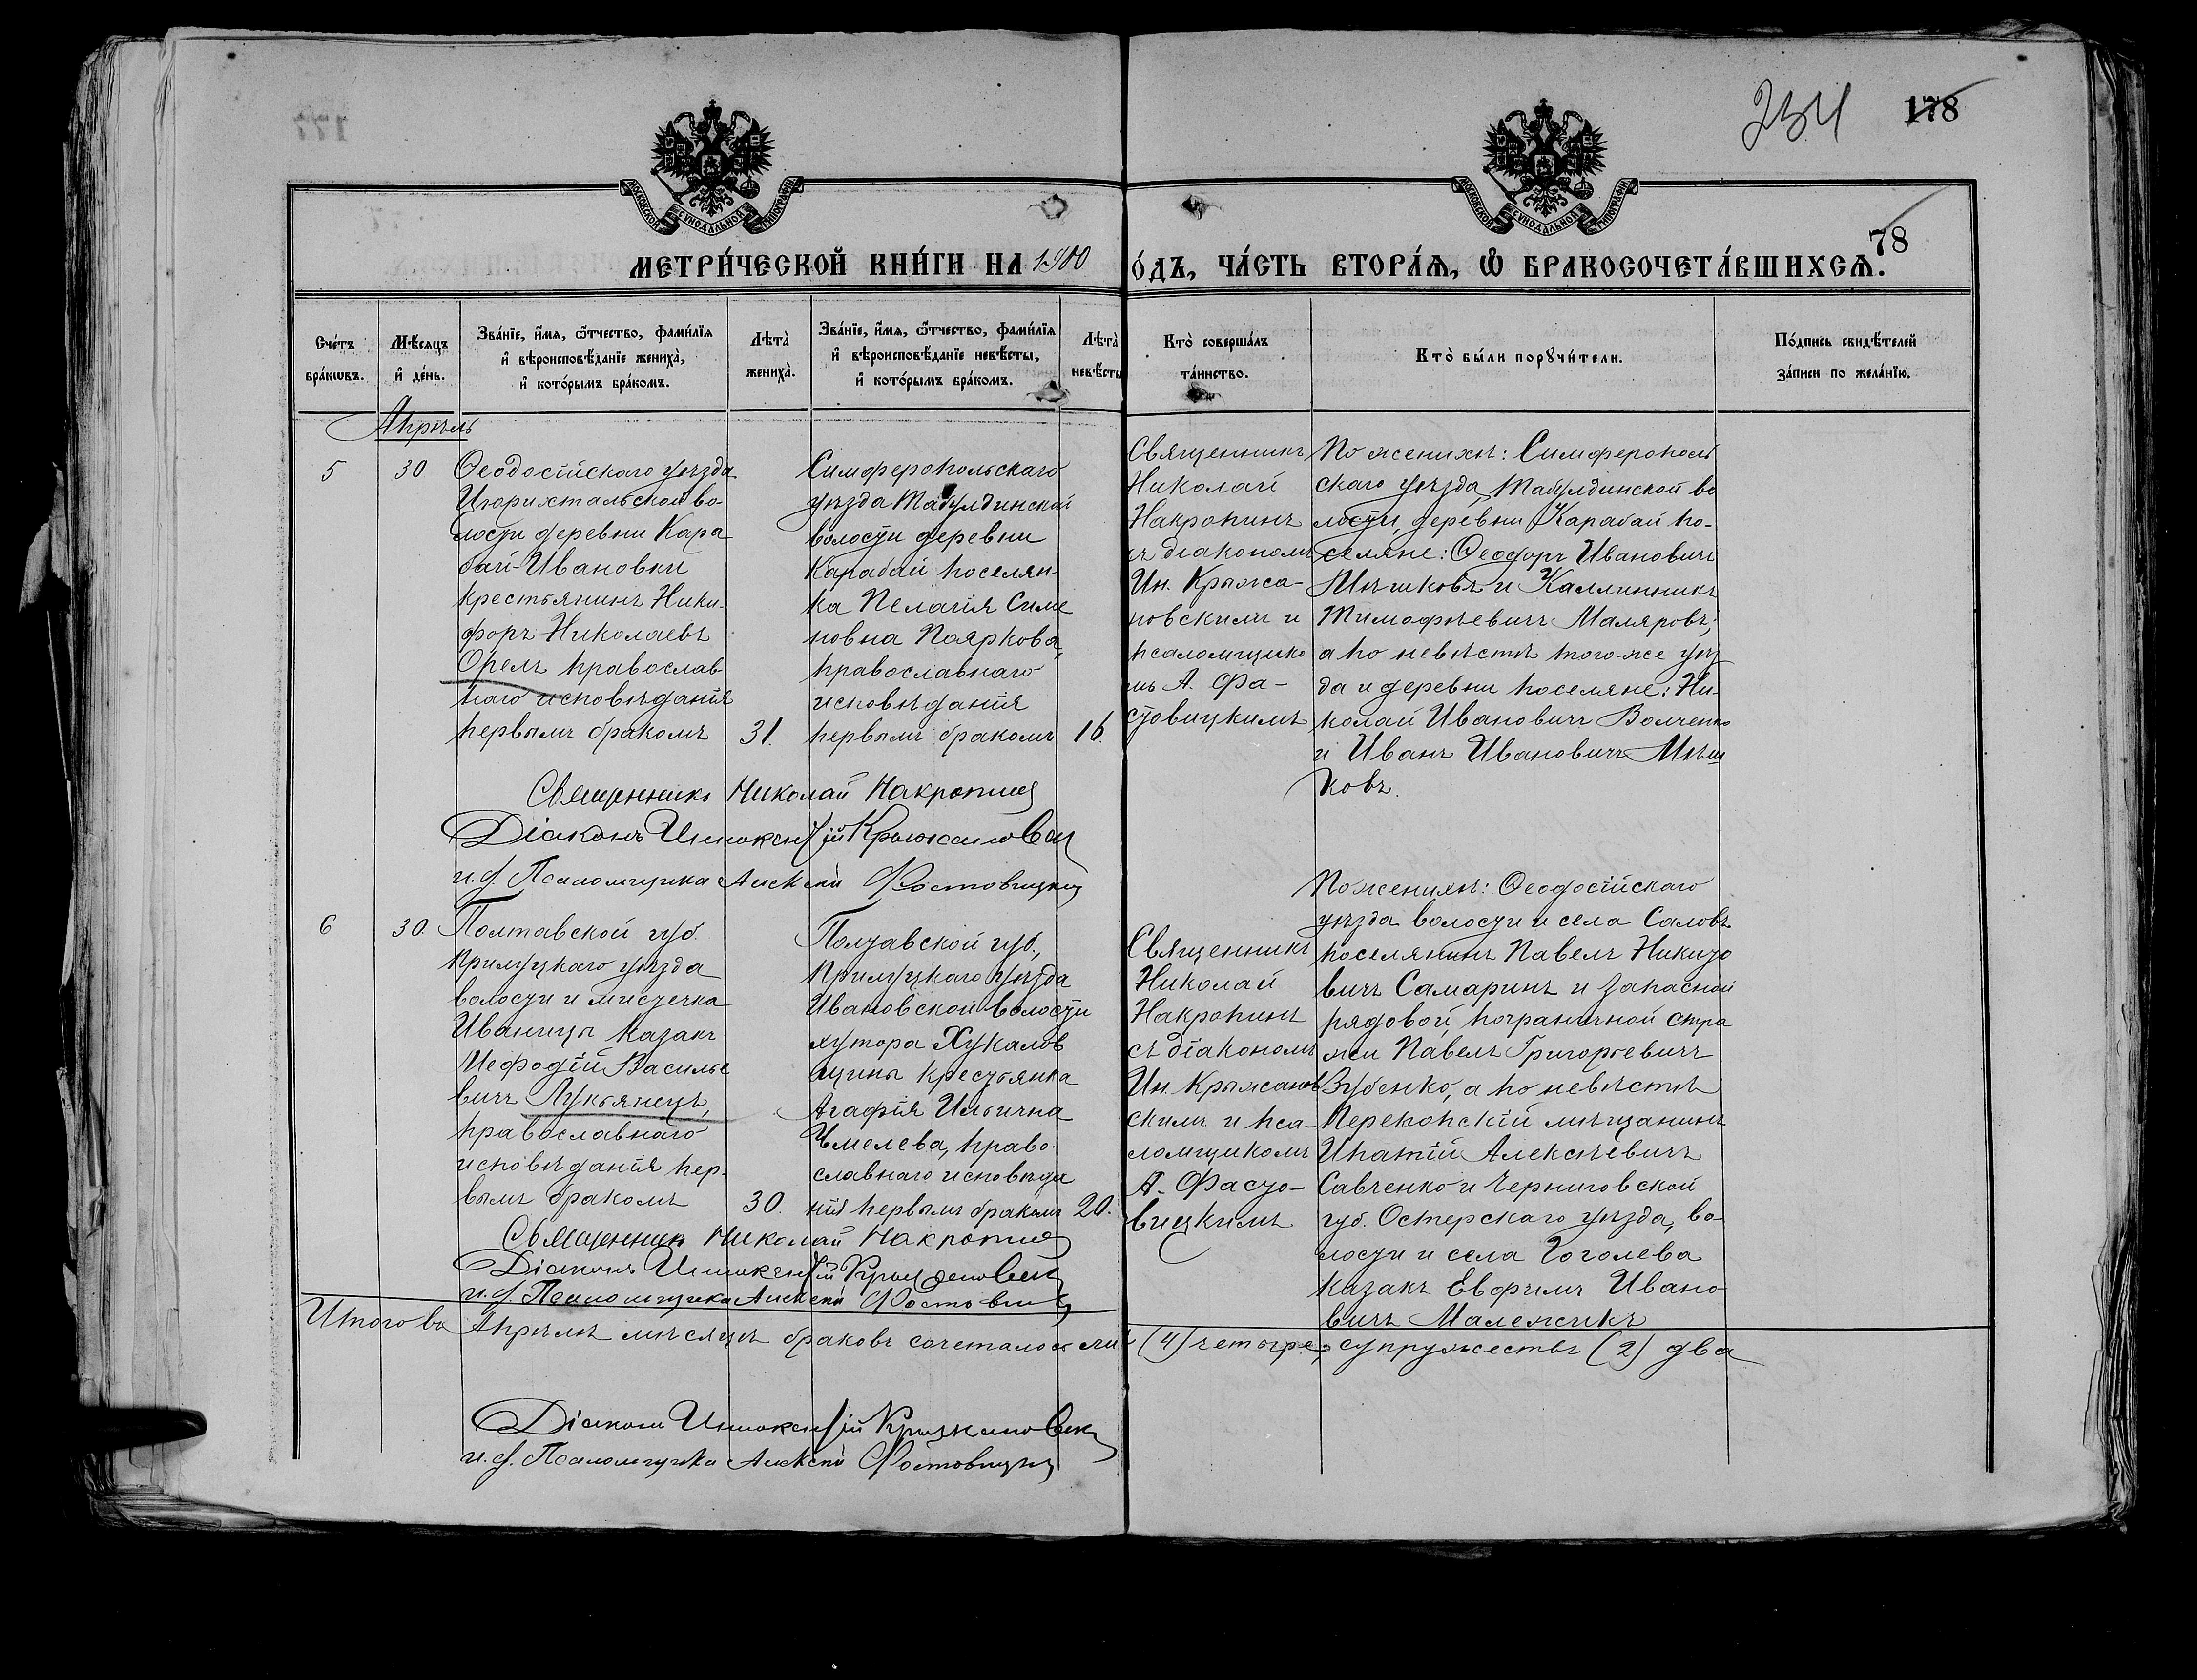 234
178
МОСКОВСКОЙ СѴНОДАЛЬНОЙ ТИПОГРАФІИ
МОСКОВСКОЙ СѴНОДАЛЬНОЙ ТИПОГРАФІИ
78
МЕТРИ́ЧЕСКОЙ КНИ́ГИ НА 1900
О́ДЪ, ЧА́СТЬ ВТОРА́Ѧ, Ѽ БРАКОСОЧЕТА́ВШИХСѦ.
Сче́тъ
бра́кѡвъ.
Мѣ́сяцъ
и҆ де́нь.
Зва́нїе, и҆́мѧ, ѻ҆́тчество, фами́лїѧ
и҆ вѣроисповѣ́данїе жениха̀,
и҆ кото́рымъ бра́комъ.
Лѣ́та̀
жениха̀.
Зва́нїе, и҆́мѧ, ѻ҆́тчество, фами́лїѧ
и҆ вѣроисповѣ́данїе невѣ́сты,
и҆ кото́рымъ бра́комъ.
Лѣ́та̀
невѣ́сты
Кто̀ соверша́лъ
та́инство.
Кто̀ бы́ли порꙋчи́тели.
По́дпись свидѣ́телей
за́писи по жела́нїю.
Апрѣль
5
30
Ѳеодосійскаго уѣзда
Цюрихтальской во-
лости деревни Кара
бай-Ивановки
крестьянинъ Ники-
форъ Николаевъ
Орелъ православ-
наго исповѣданія
первымъ бракомъ
31.
Симферопольскаго
уѣзда Табулдинской
волости деревни
Карабай поселян-
ка Пелагія Симе
новна Пояркова,
православнаго
исповѣданія
первымъ бракомъ
16.
Священникъ
Николай
Накропинъ
съ діакономъ
Ин. Крыжа-
новскимъ и
псаломщико
мъ А. Фа-
стовицкимъ
По женихѣ: Симферополь
скаго уѣзда, Табулдинской во
лости, деревни Карабай по-
селяне: Ѳеодоръ Ивановичъ
Мѣшковъ и Каллинникъ
Тимофѣевичъ Маляровъ;
а по невѣстѣ того-же уѣз
да и деревни поселяне: Ни-
колай Ивановичъ Волченко
и Иванъ Ивановичъ Мѣш
ковъ.
Священникъ Николай Накропинъ
Діаконъ Иннокентій Крыжановскій
и. д. Псаломщика Алексѣй Фастовицкій
6
30.
Полтавской губ.
Прилуцкаго уѣзда
волости и мистечка
Иваницы казакъ
Мефодій Василье
вичъ Лукьянецъ,
православнаго
исповѣданія пер-
вымъ бракомъ
30.
Полтавской губ.,
Прилуцкаго уѣзда
Ивановской волости
хутора Хукалов
щины крестьянка
Агафія Ильична
Чмелева, право-
славнаго исповѣда
нія первымъ бракомъ
20.
Священникъ
Николай
Накропинъ
съ діакономъ
Ин. Крыжанов
скимъ и пса-
ломщикомъ
А. Фасто-
вицкимъ
По женихѣ: Ѳеодосійскаго
уѣзда волости и села Саловъ
поселянинъ Павелъ Никито
вичъ Самаринъ и запасной
рядовой, пограничной стра
жи Павелъ Григорьевичъ
Зубенко, а по невѣстѣ
Перекопскій мѣщанинъ
Ипатій Алексѣевичъ
Савченко и Черниговской
губ. Остерскаго уѣзда, во-
лости и села Гоголева
казакъ Евфимъ Ивано-
вичъ Малежикъ
Священникъ Николай Накропинъ
Діаконъ Иннокентій Крыжановскій
и. д. Псаломщика Алексѣй Фастовицкій
Итого въ Апрѣлѣ мѣсяцѣ браковъ сочеталось (4) четыре, супружествъ (2) два
Діаконъ Иннокентій Крыжановскій
и. д. Псаломщика Алексѣй Фастовицкій